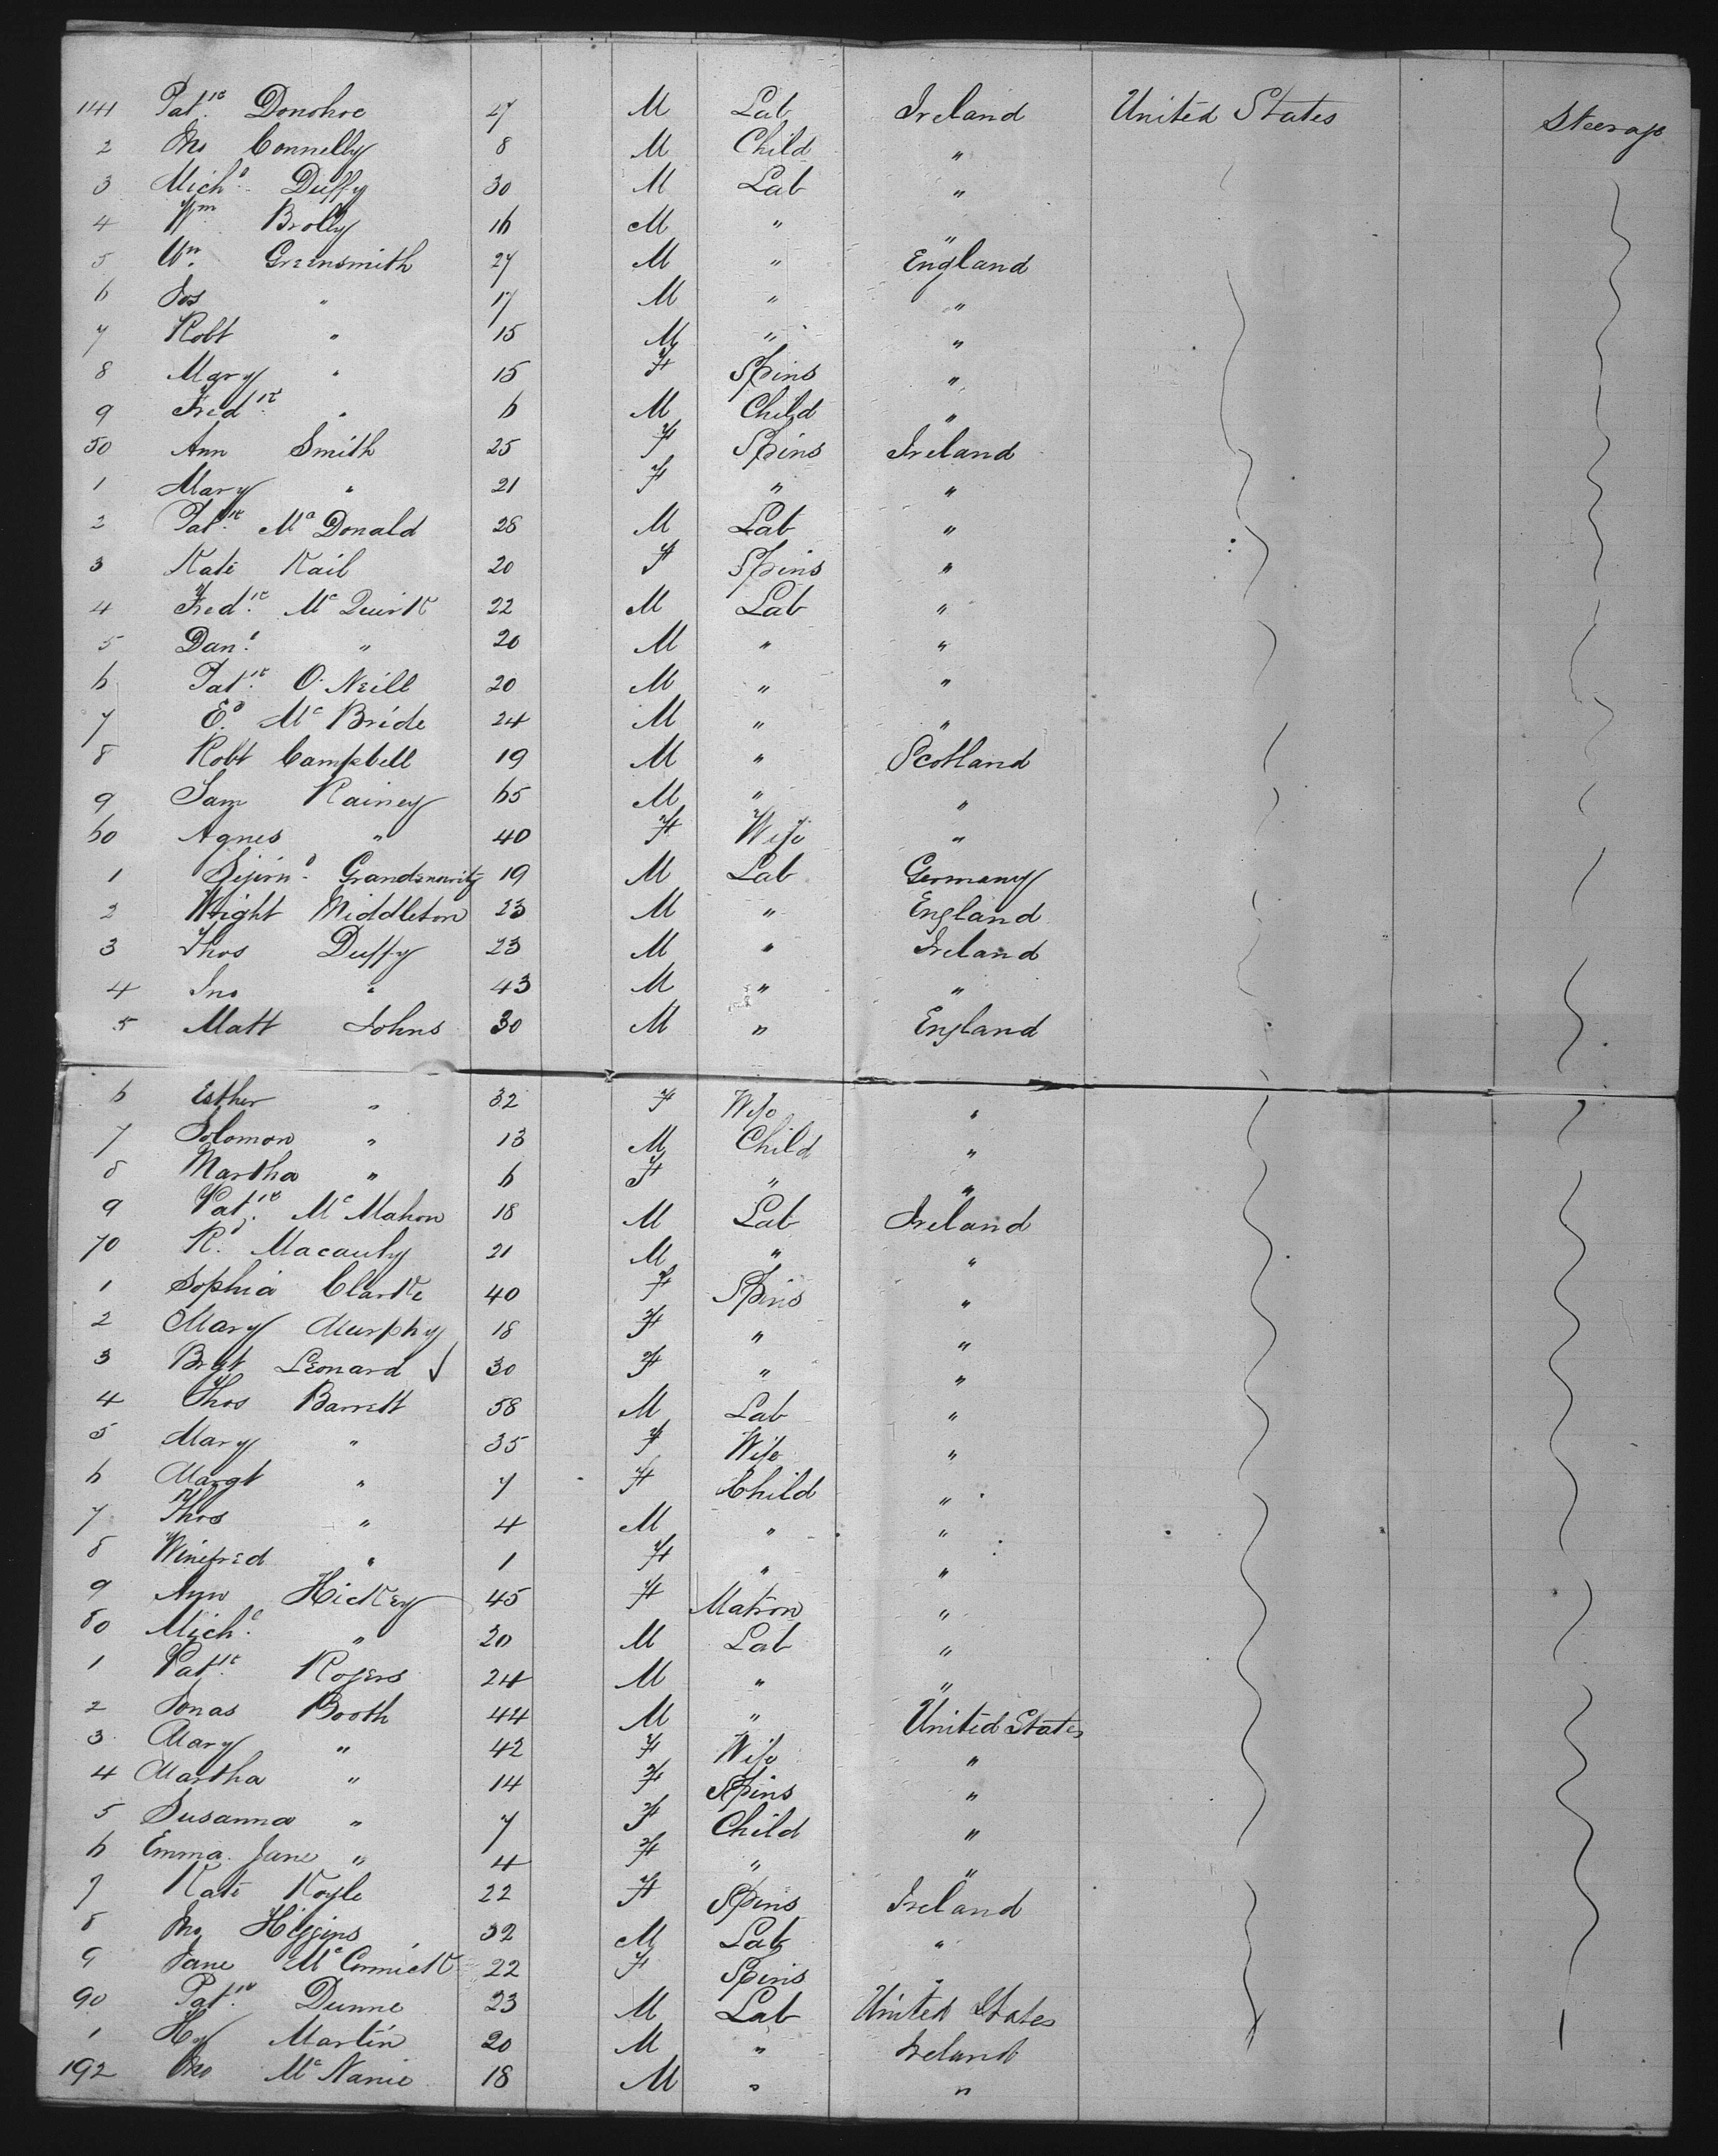 141 Patk Donohoe 27 M Lab Ireland United States Steerage
2 Jno Connelly 8 M Child "
3 Michl Duffy 30 M Lab "
4 Wm Brolly 16 M " "
5 Wm Greensmith 27 M " England
6 Jos " 17 M " "
7 Robt " 15 M " "
8 Mary " 15 F Spins "
9 Fredk " 6 M Child "
50 Ann Smith 25 F Spins Ireland
1 Mary " 21 F " "
2 Patk Mc Donald 28 M Lab "
3 Kate Kail 20 F Spins "
4 Fredk Mc Quirk 22 M Lab "
5 Danl " 20 M " "
6 Patk O'Neill 20 M " "
7 Ed Mc Bride 24 M " "
8 Robt Campbell 19 M " Scotland
9 Sam Rainey 65 M " "
60 Agnes " 40 F Wife "
1 19 M Lab Germany
2 Wright Middleton 23 M " England
3 Thos Duffy 23 M " Ireland
4 Jno " 43 M " "
5 Matt Johns 30 M " England
6 Esther " 32 F Wife "
7 Solomon " 13 M Child "
8 Martha " 6 F " "
9 Patk Mc Mahon 18 M Lab Ireland
70 Rd Macauly 21 M " "
1 Sophia Clarke 40 F Spins "
2 Mary Murphy 18 F " "
3 Bryt Leonard √ 30 F " "
4 Thos Barrett 58 M Lab "
5 Mary " 35 F Wife "
6 Margt " 7 F Child "
7 Thos " 4 M " "
8 Winefred " 1 F " "
9 Ann Hickey 45 F Matron "
80 Michl " 20 M Lab "
1 Patk Rogers 24 M " "
2 Jonas Booth 44 M " United States
3 Mary " 42 F Wife "
4 Martha " 14 F Spins "
5 Susanna " 7 F Child "
6 Emma Jane " 4 F " "
7 Kate Koyle 22 F Spins Ireland
8 Jno Higgins 32 M Lab "
9 Jane Mc Cormick 22 F Spins "
90 Patk Dunne 23 M Lab United States
1 Hy Martin 20 M " Ireland
192 Jno Mc Nanie 18 M " "